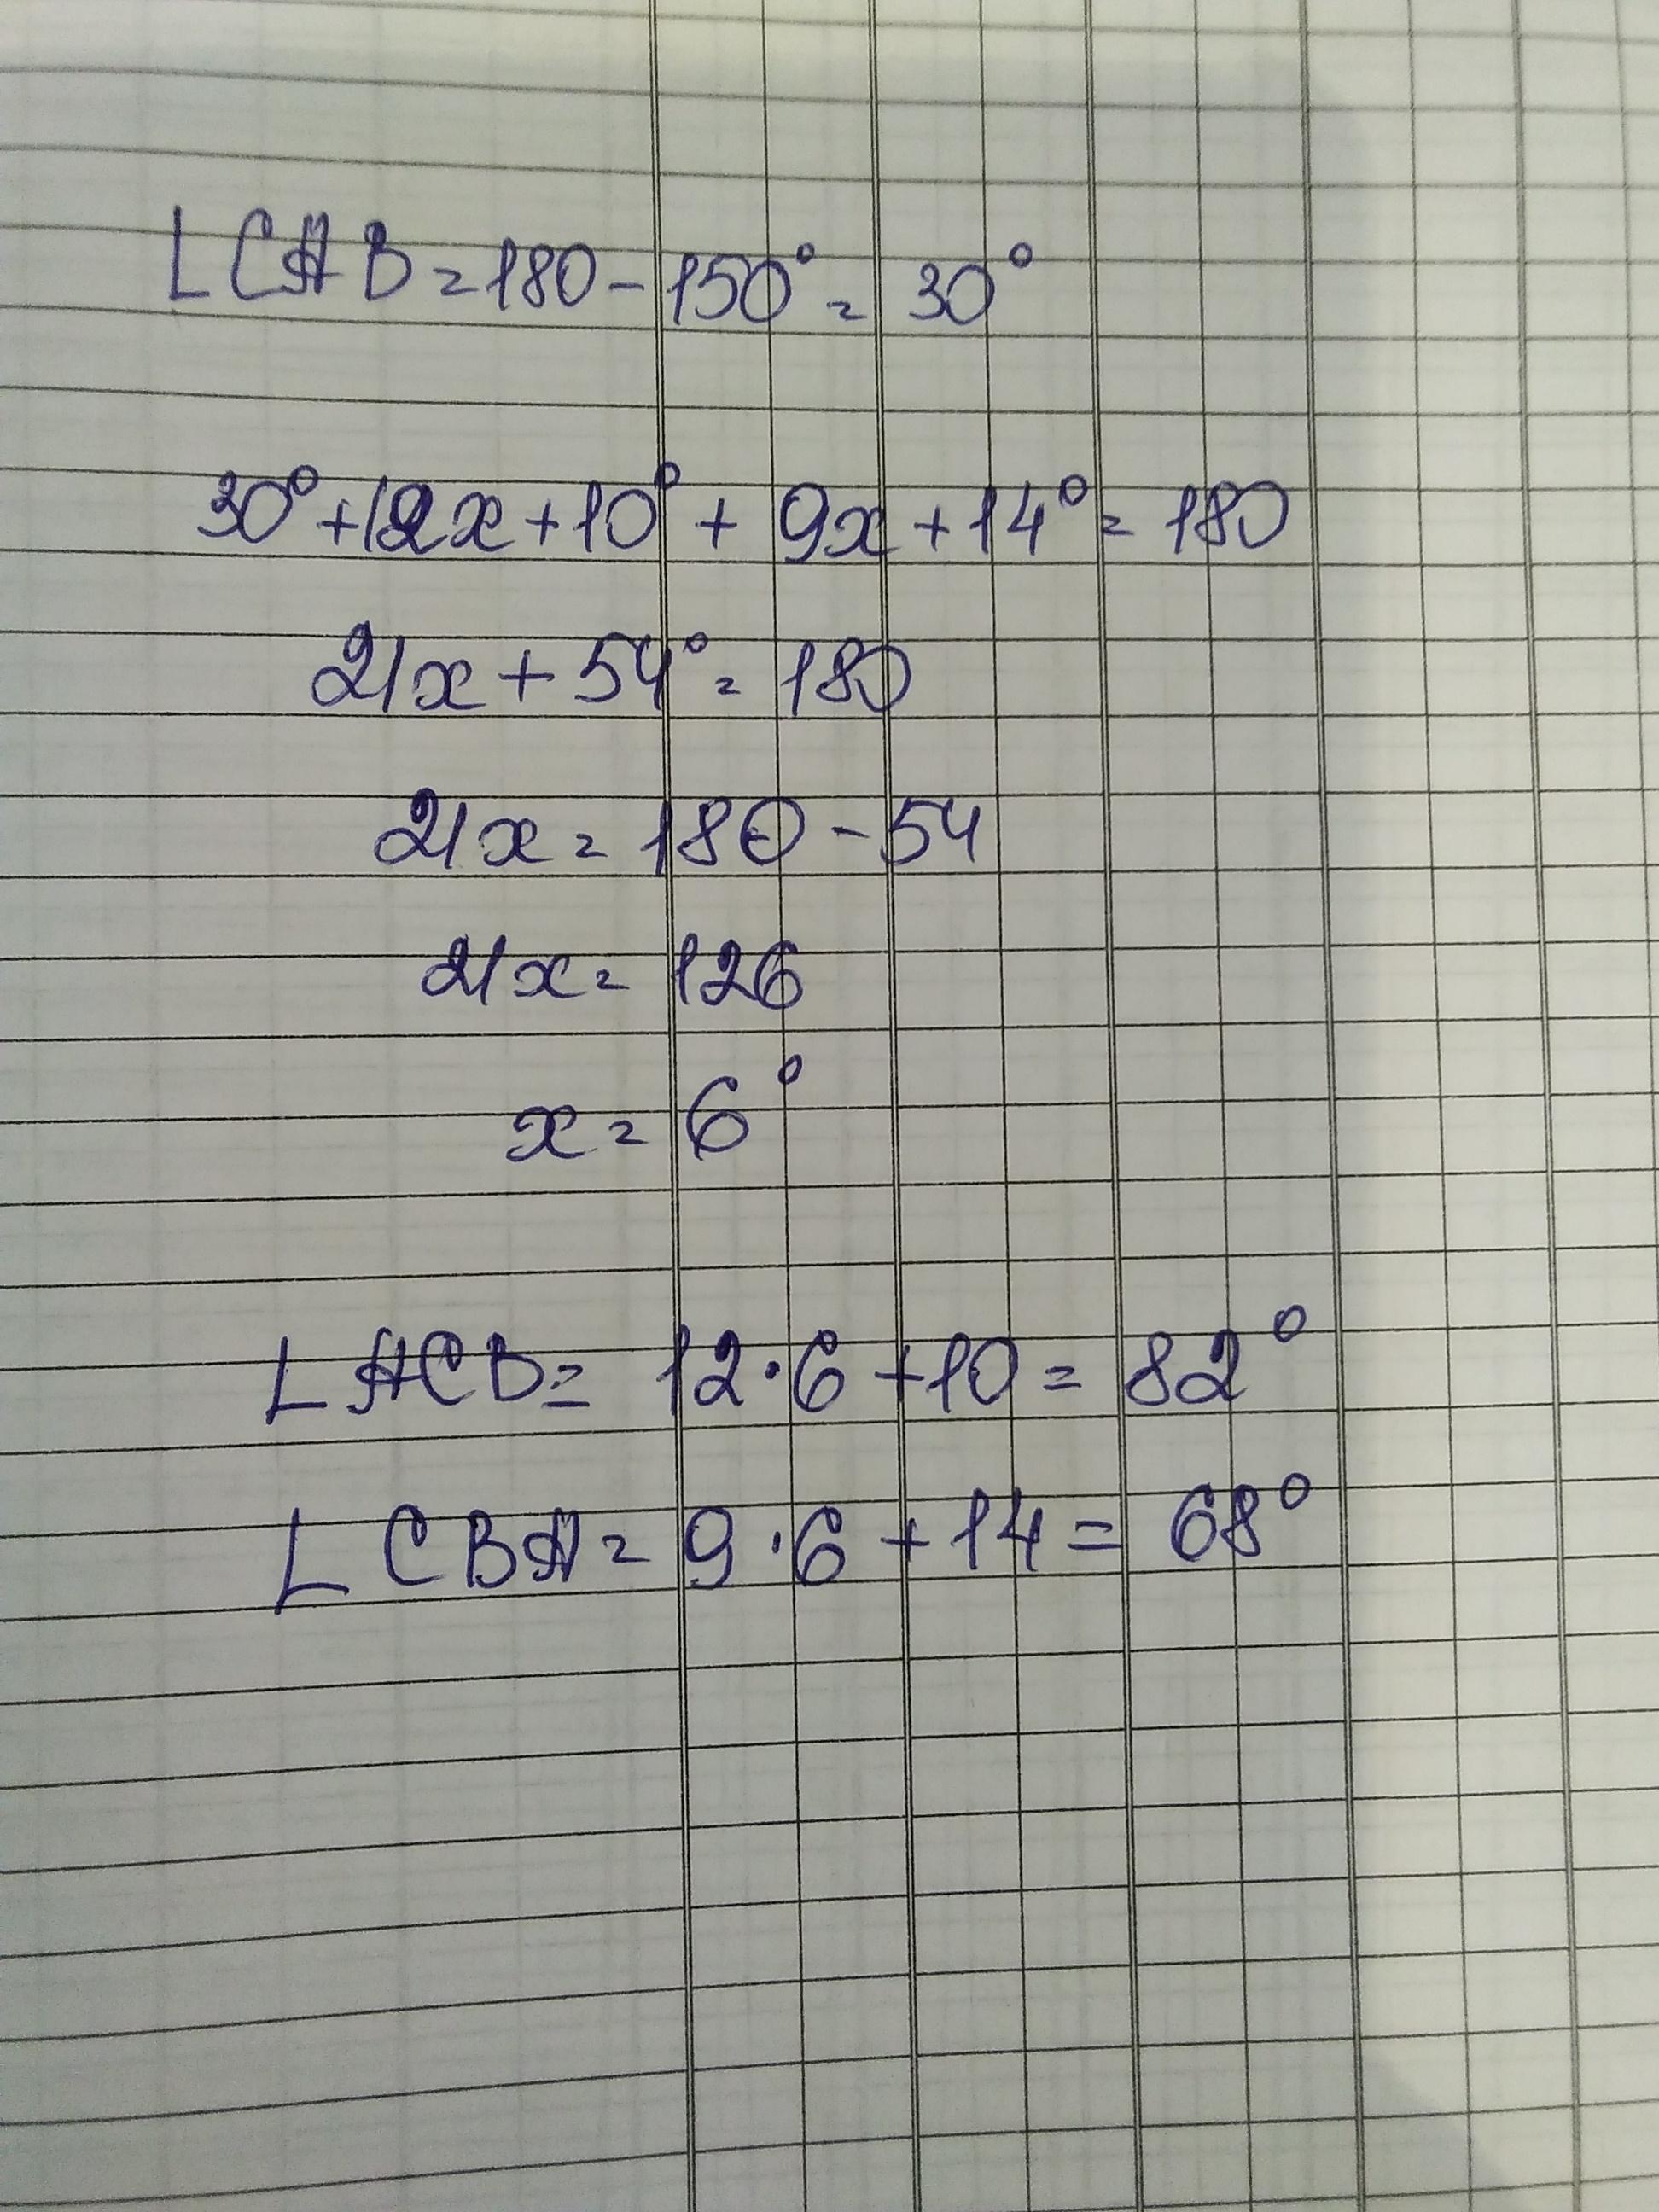 ∠CAB=180-150°=30°
30°+12x+10°+9x+14°=180
21x+54°=180
21x=180-54
21x=126
x=6°
∠ACB=12·6+10=82°
∠CBA=9·6+14=68°